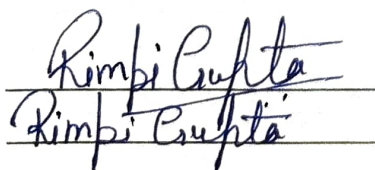 Rimpi Gupta
Rimpi Gupta